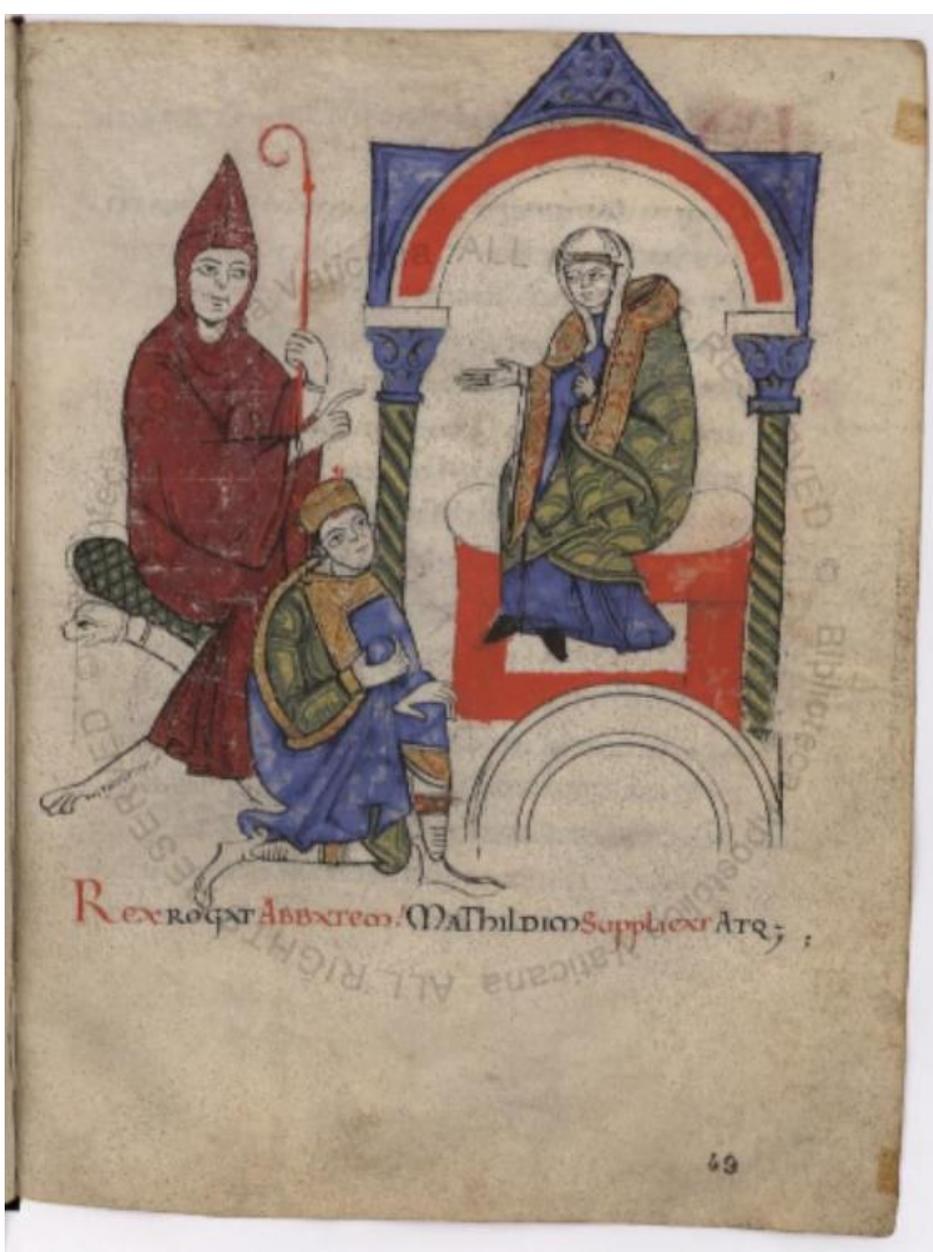 Rex ROGAT ABBATEM: MATHILDIM SUPPLICAT ATQ;
49
© Biblioteca Apostolica Vaticana ALL RIGHTS RESERVED